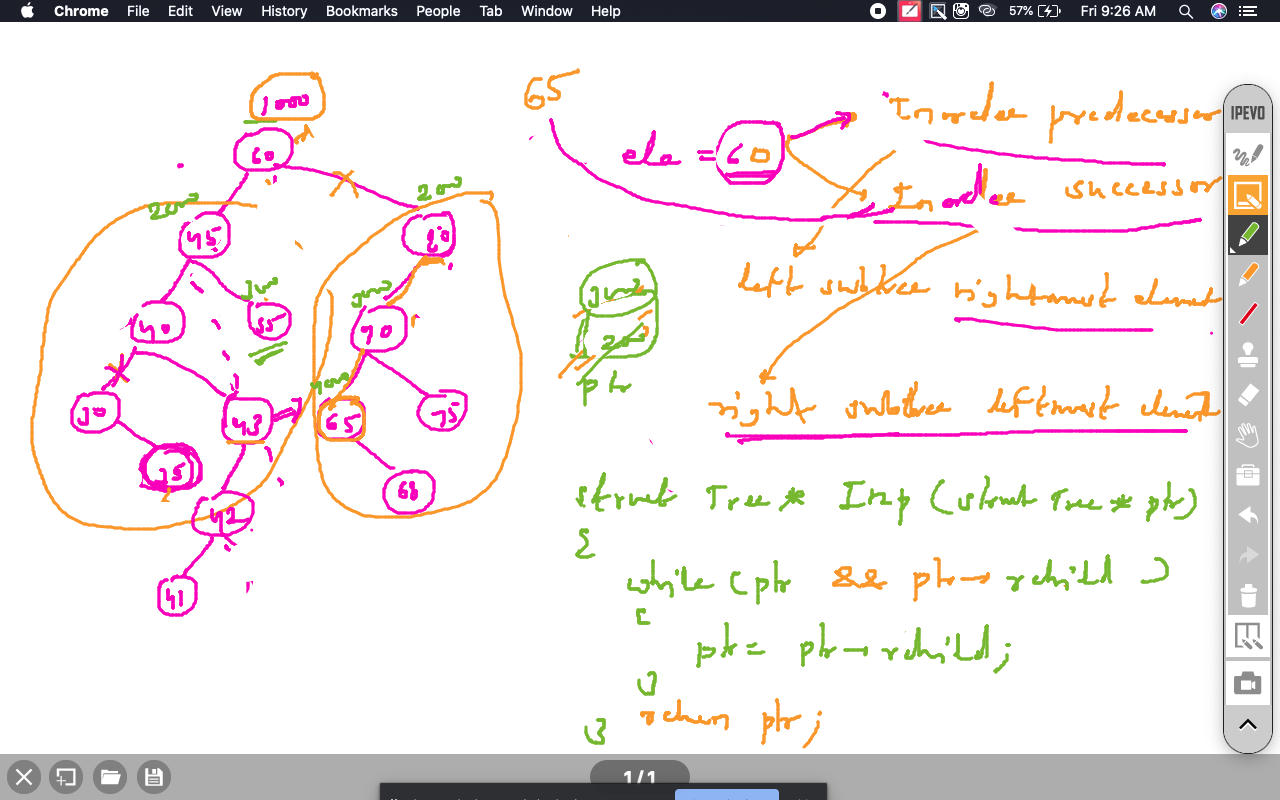 Chrome File Edit View History Bookmarks People Tab Window Help 57% Fri 9:26 AM
1000
60
200
200
45
80
300
300
40
55
70
400
30
43
65
75
35
68
42
41
65
ele = 60
Inorder predecessor
Inorder successor
left subtree rightmost element
right subtree leftmost element
300
200
ptr
struct Tree * Inp (struct Tree * ptr)
{
while (ptr && ptr→rchild )
{
ptr = ptr→rchild;
}
return ptr;
}
IPEVO
1/1